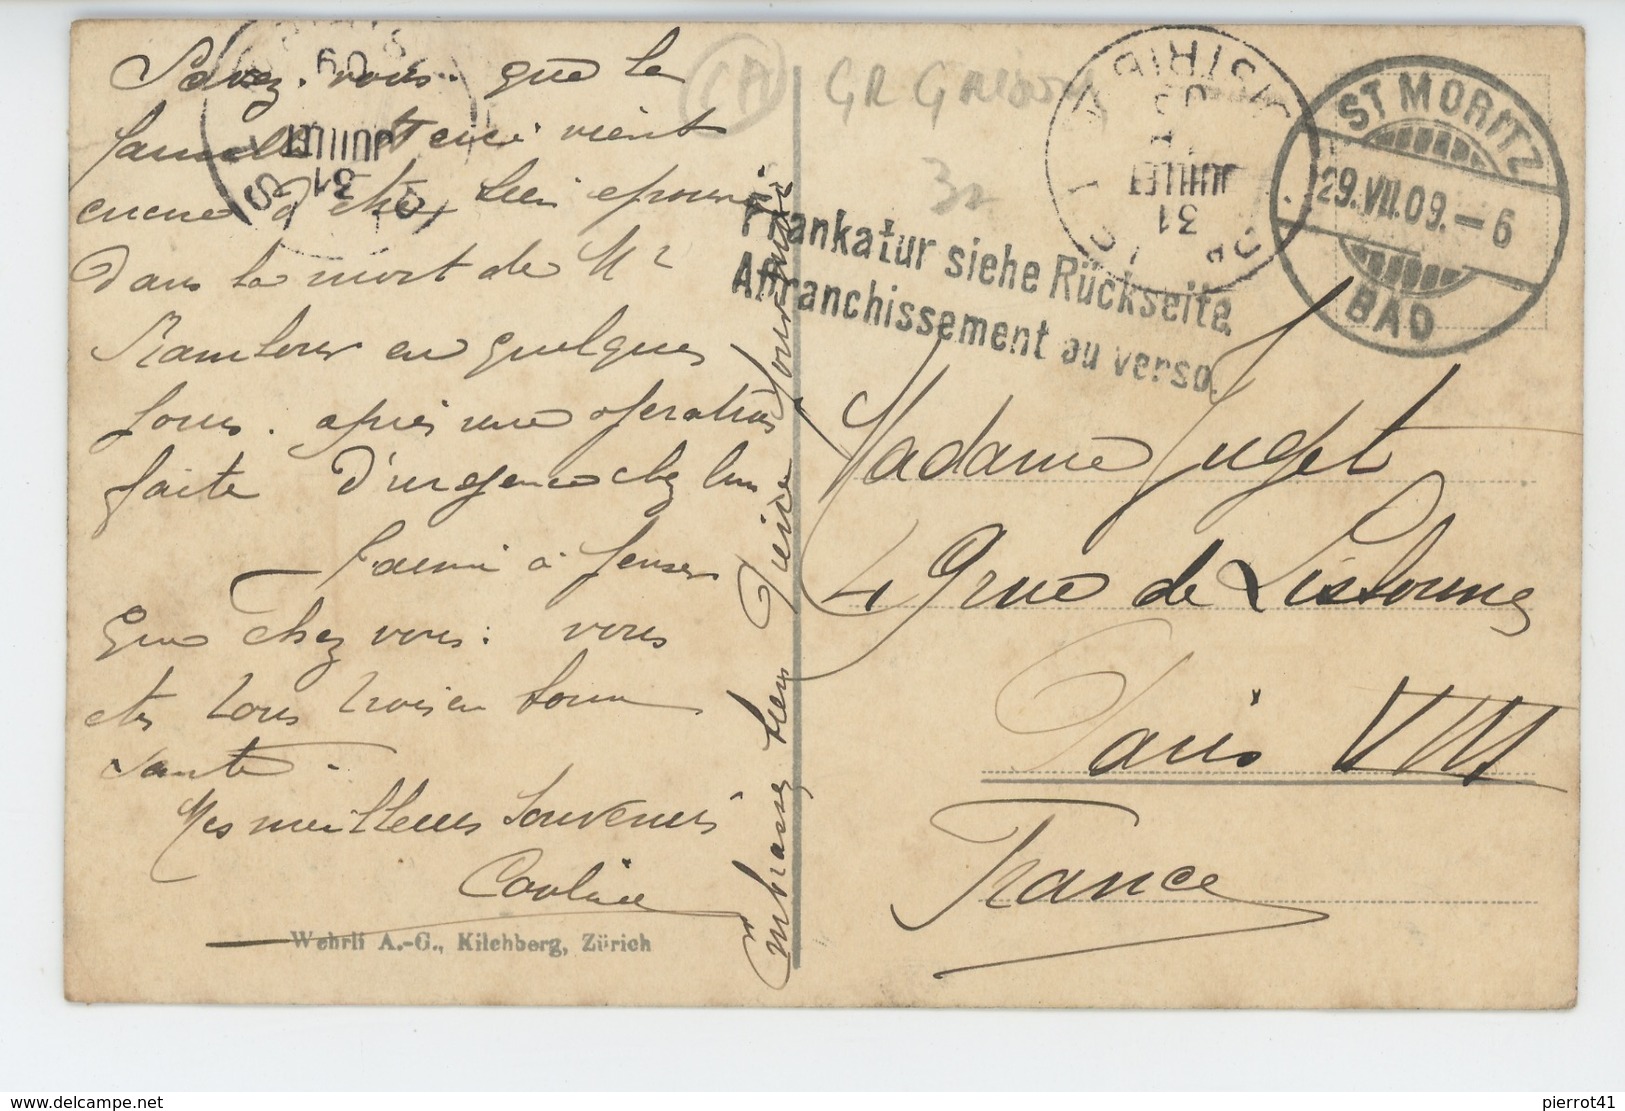 Savez-vous que la
famille vient
encore d'être bien
dans la mort de Mr
en quelques
jours. après une opération
faite d'urgence chez lui
à penser
que chez vous: vous
êtes tous trois en bonne
santé.
Mes meilleurs souvenirs
Embrassez bien Pierre pour moi
Wehrli A.-G., Kilchberg, Zürich
GR
32
Frankatur siehe Rückseite.
Affranchissement au verso.
31
JUILLET
31
JUILLET
09
ST MORITZ
29.VII.09.-6
BAD
Madame Juget
49 rue de Lisbonne
Paris VIII
France
pierrot41
www.delcampe.net